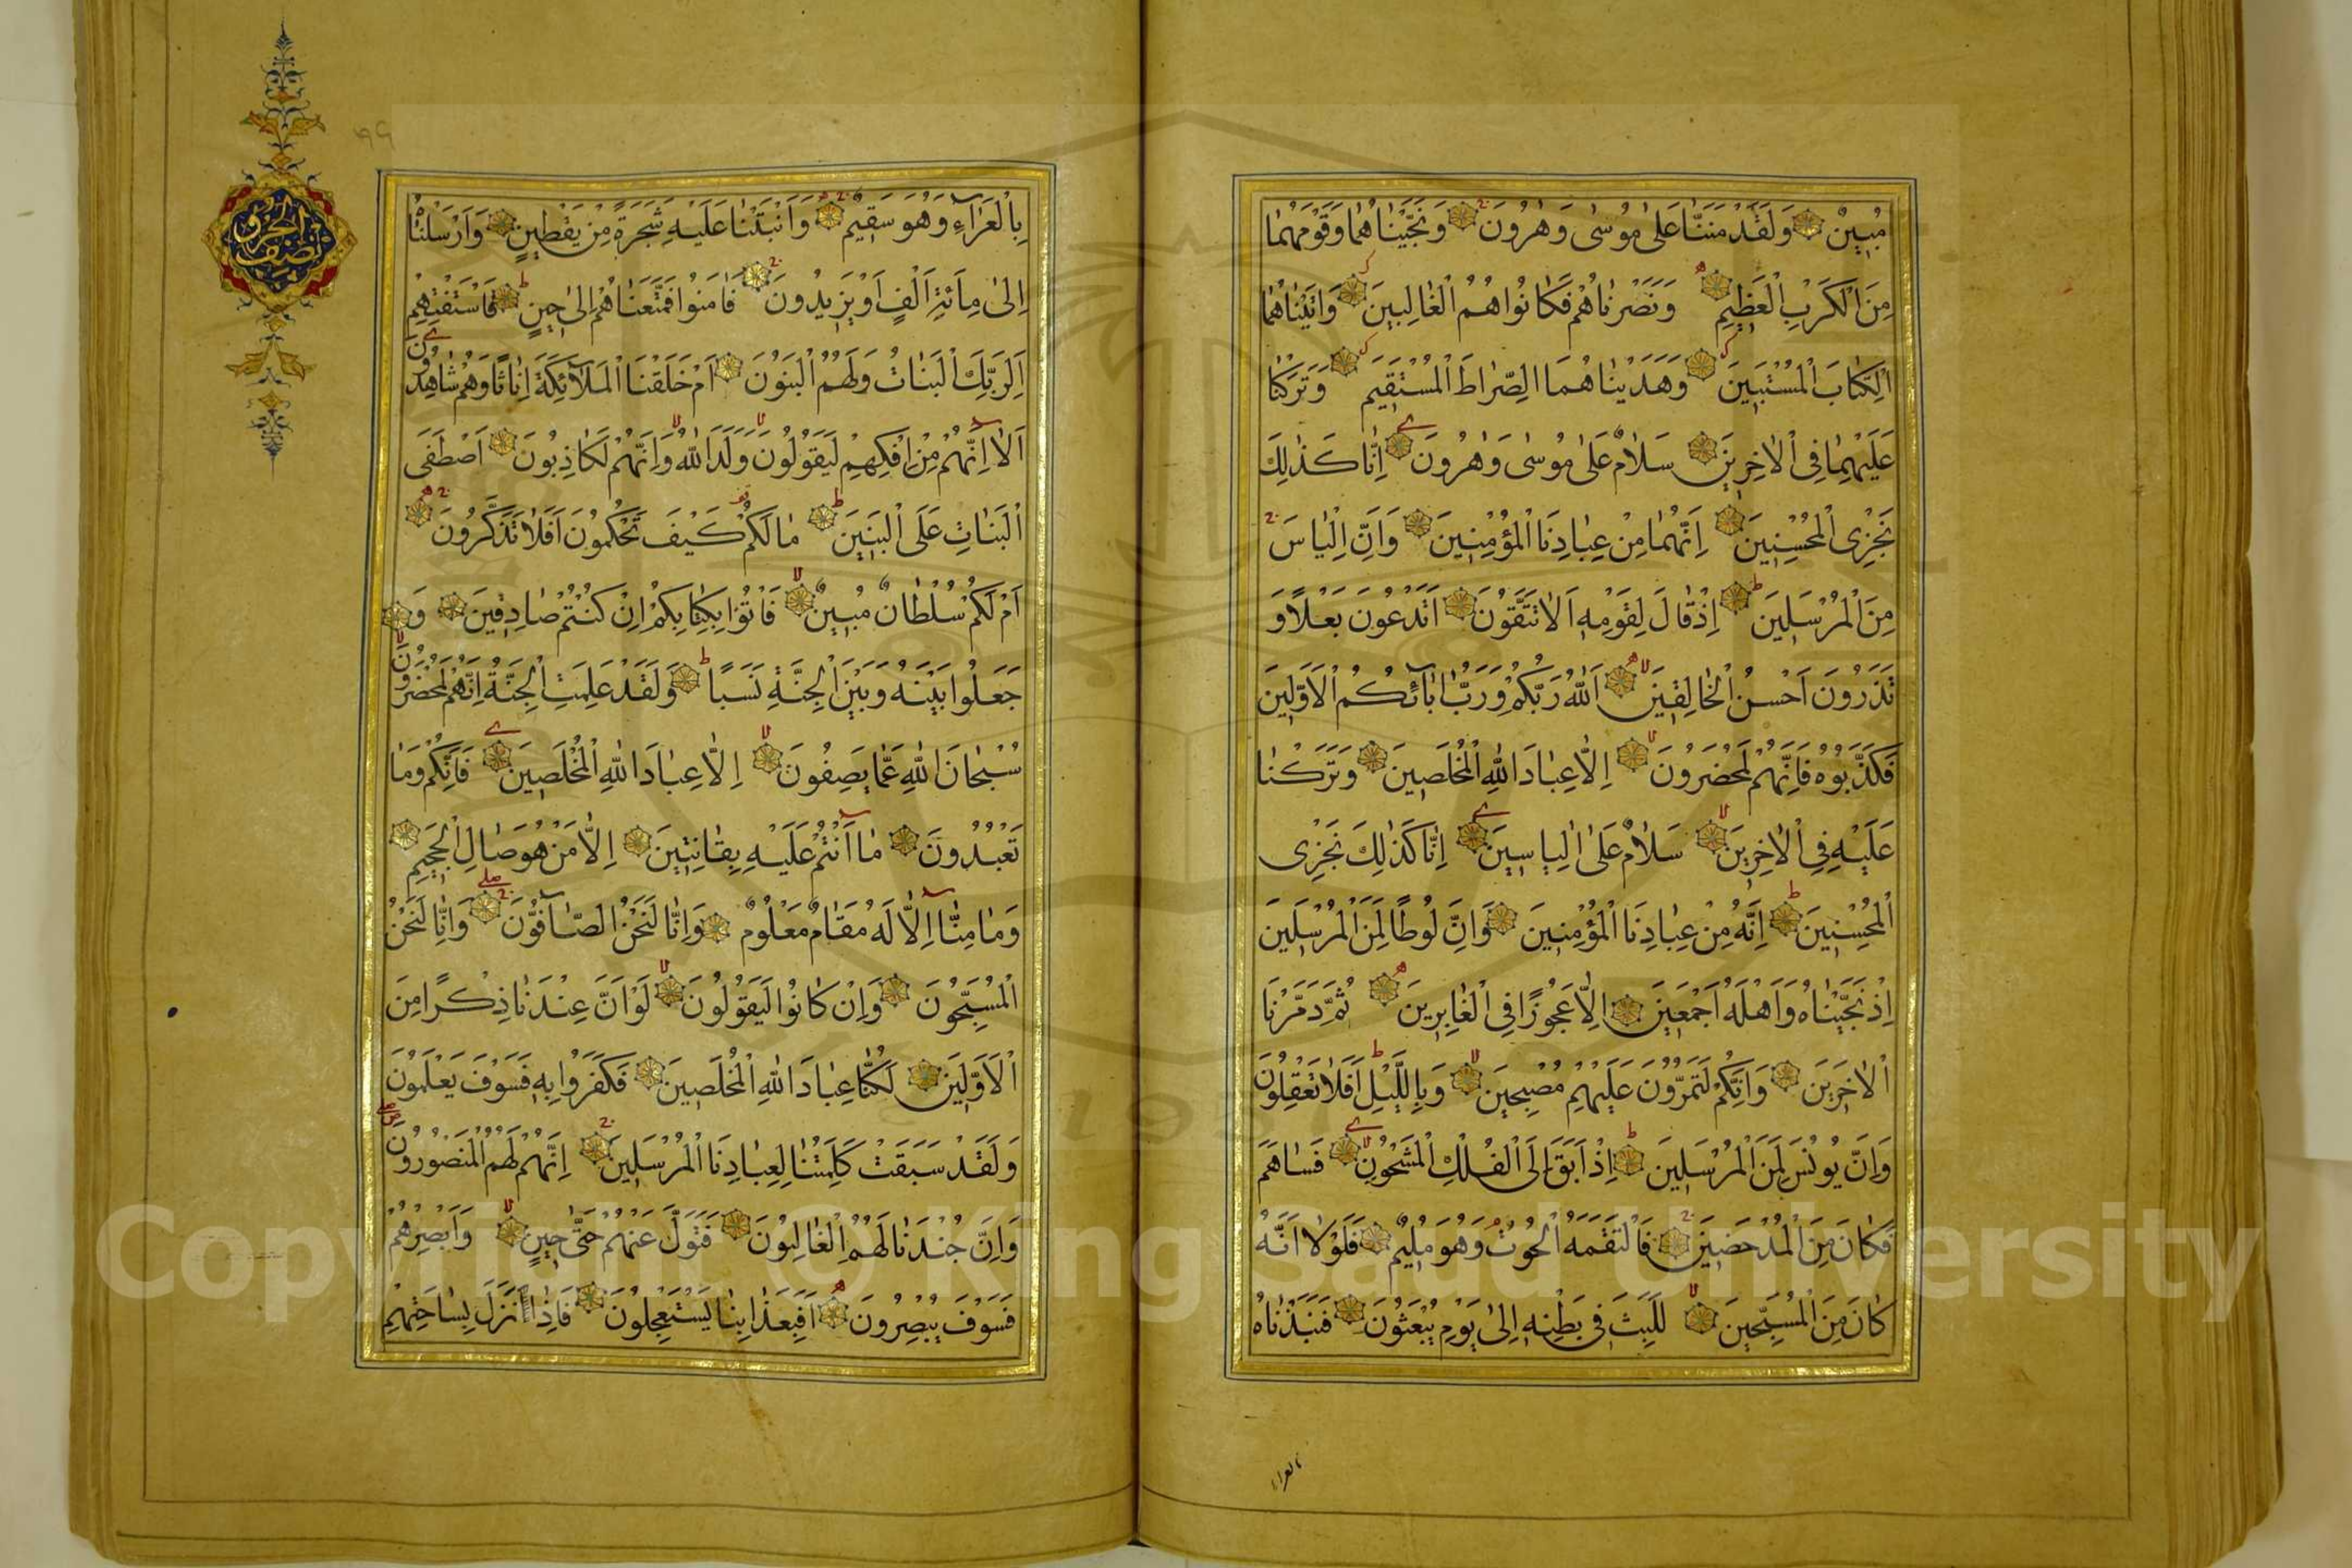 مُبِينٌ وَلَقَدْ مَنَنَّا عَلَىٰ مُوسَىٰ وَهٰرُونَ وَنَجَّيْنَاهُمَا وَقَوْمَهُمَا
مِنَ الْكَرْبِ الْعَظِيمِ وَنَصَرْنَاهُمْ فَكَانُوا هُمُ الْغَالِبِينَ وَاٰتَيْنَاهُمَا
الْكِتَابَ الْمُسْتَبِينَ وَهَدَيْنَاهُمَا الصِّرَاطَ الْمُسْتَقِيمَ وَتَرَكْنَا
عَلَيْهِمَا فِي الْاٰخِرِينَ سَلَامٌ عَلَىٰ مُوسَىٰ وَهٰرُونَ اِنَّا كَذٰلِكَ
نَجْزِي الْمُحْسِنِينَ اِنَّهُمَا مِنْ عِبَادِنَا الْمُؤْمِنِينَ وَاِنَّ اِلْيَاسَ
مِنَ الْمُرْسَلِينَ اِذْ قَالَ لِقَوْمِهِ اَلَا تَتَّقُونَ اَتَدْعُونَ بَعْلًا وَ
تَذَرُونَ اَحْسَنَ الْخَالِقِينَ اَللّٰهُ رَبُّكُمْ وَرَبُّ اٰبَآئِكُمُ الْاَوَّلِينَ
فَكَذَّبُوهُ فَاِنَّهُمْ لَمُحْضَرُونَ اِلَّا عِبَادَ اللّٰهِ الْمُخْلَصِينَ وَتَرَكْنَا
عَلَيْهِ فِي الْاٰخِرِينَ سَلَامٌ عَلَىٰ اِلْيَاسِينَ اِنَّا كَذٰلِكَ نَجْزِي
الْمُحْسِنِينَ اِنَّهُ مِنْ عِبَادِنَا الْمُؤْمِنِينَ وَاِنَّ لُوطًا لَمِنَ الْمُرْسَلِينَ
اِذْ نَجَّيْنَاهُ وَاَهْلَهُ اَجْمَعِينَ اِلَّا عَجُوزًا فِي الْغَابِرِينَ ثُمَّ دَمَّرْنَا
الْاٰخَرِينَ وَاِنَّكُمْ لَتَمُرُّونَ عَلَيْهِمْ مُصْبِحِينَ وَبِاللَّيْلِ اَفَلَا تَعْقِلُونَ
وَاِنَّ يُونُسَ لَمِنَ الْمُرْسَلِينَ اِذْ اَبَقَ اِلَى الْفُلْكِ الْمَشْحُونِ فَسَاهَمَ
فَكَانَ مِنَ الْمُدْحَضِينَ فَالْتَقَمَهُ الْحُوتُ وَهُوَ مُلِيمٌ فَلَوْلَا اَنَّهُ
كَانَ مِنَ الْمُسَبِّحِينَ لَلَبِثَ فِي بَطْنِهِ اِلَىٰ يَوْمِ يُبْعَثُونَ فَنَبَذْنَاهُ
بالعراء
بِالْعَرَآءِ وَهُوَ سَقِيمٌ وَاَنْبَتْنَا عَلَيْهِ شَجَرَةً مِنْ يَقْطِينٍ وَاَرْسَلْنَاهُ
اِلَىٰ مِائَةِ اَلْفٍ اَوْ يَزِيدُونَ فَاٰمَنُوا فَمَتَّعْنَاهُمْ اِلَىٰ حِينٍ فَاسْتَفْتِهِمْ
اَلِرَبِّكَ الْبَنَاتُ وَلَهُمُ الْبَنُونَ اَمْ خَلَقْنَا الْمَلَآئِكَةَ اِنَاثًا وَهُمْ شَاهِدُونَ
اَلَا اِنَّهُمْ مِنْ اِفْكِهِمْ لَيَقُولُونَ وَلَدَ اللّٰهُ وَاِنَّهُمْ لَكَاذِبُونَ اَصْطَفَى
الْبَنَاتِ عَلَى الْبَنِينَ مَا لَكُمْ كَيْفَ تَحْكُمُونَ اَفَلَا تَذَكَّرُونَ
اَمْ لَكُمْ سُلْطَانٌ مُبِينٌ فَأْتُوا بِكِتَابِكُمْ اِنْ كُنْتُمْ صَادِقِينَ وَ
جَعَلُوا بَيْنَهُ وَبَيْنَ الْجِنَّةِ نَسَبًا وَلَقَدْ عَلِمَتِ الْجِنَّةُ اِنَّهُمْ لَمُحْضَرُونَ
سُبْحَانَ اللّٰهِ عَمَّا يَصِفُونَ اِلَّا عِبَادَ اللّٰهِ الْمُخْلَصِينَ فَاِنَّكُمْ وَمَا
تَعْبُدُونَ مَا اَنْتُمْ عَلَيْهِ بِفَاتِنِينَ اِلَّا مَنْ هُوَ صَالِ الْجَحِيمِ
وَمَا مِنَّا اِلَّا لَهُ مَقَامٌ مَعْلُومٌ وَاِنَّا لَنَحْنُ الصَّآفُّونَ وَاِنَّا لَنَحْنُ
الْمُسَبِّحُونَ وَاِنْ كَانُوا لَيَقُولُونَ لَوْ اَنَّ عِنْدَنَا ذِكْرًا مِنَ
الْاَوَّلِينَ لَكُنَّا عِبَادَ اللّٰهِ الْمُخْلَصِينَ فَكَفَرُوا بِهِ فَسَوْفَ يَعْلَمُونَ
وَلَقَدْ سَبَقَتْ كَلِمَتُنَا لِعِبَادِنَا الْمُرْسَلِينَ اِنَّهُمْ لَهُمُ الْمَنْصُورُونَ
وَاِنَّ جُنْدَنَا لَهُمُ الْغَالِبُونَ فَتَوَلَّ عَنْهُمْ حَتَّىٰ حِينٍ وَاَبْصِرْهُمْ
فَسَوْفَ يُبْصِرُونَ اَفَبِعَذَابِنَا يَسْتَعْجِلُونَ فَاِذَا نَزَلَ بِسَاحَتِهِمْ
نصف الحزب
٩٩
Copyright © King Saud University
1957